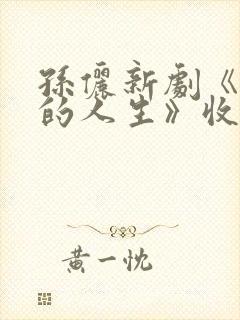 孫儷新劇《
的人生》收
黃一忱